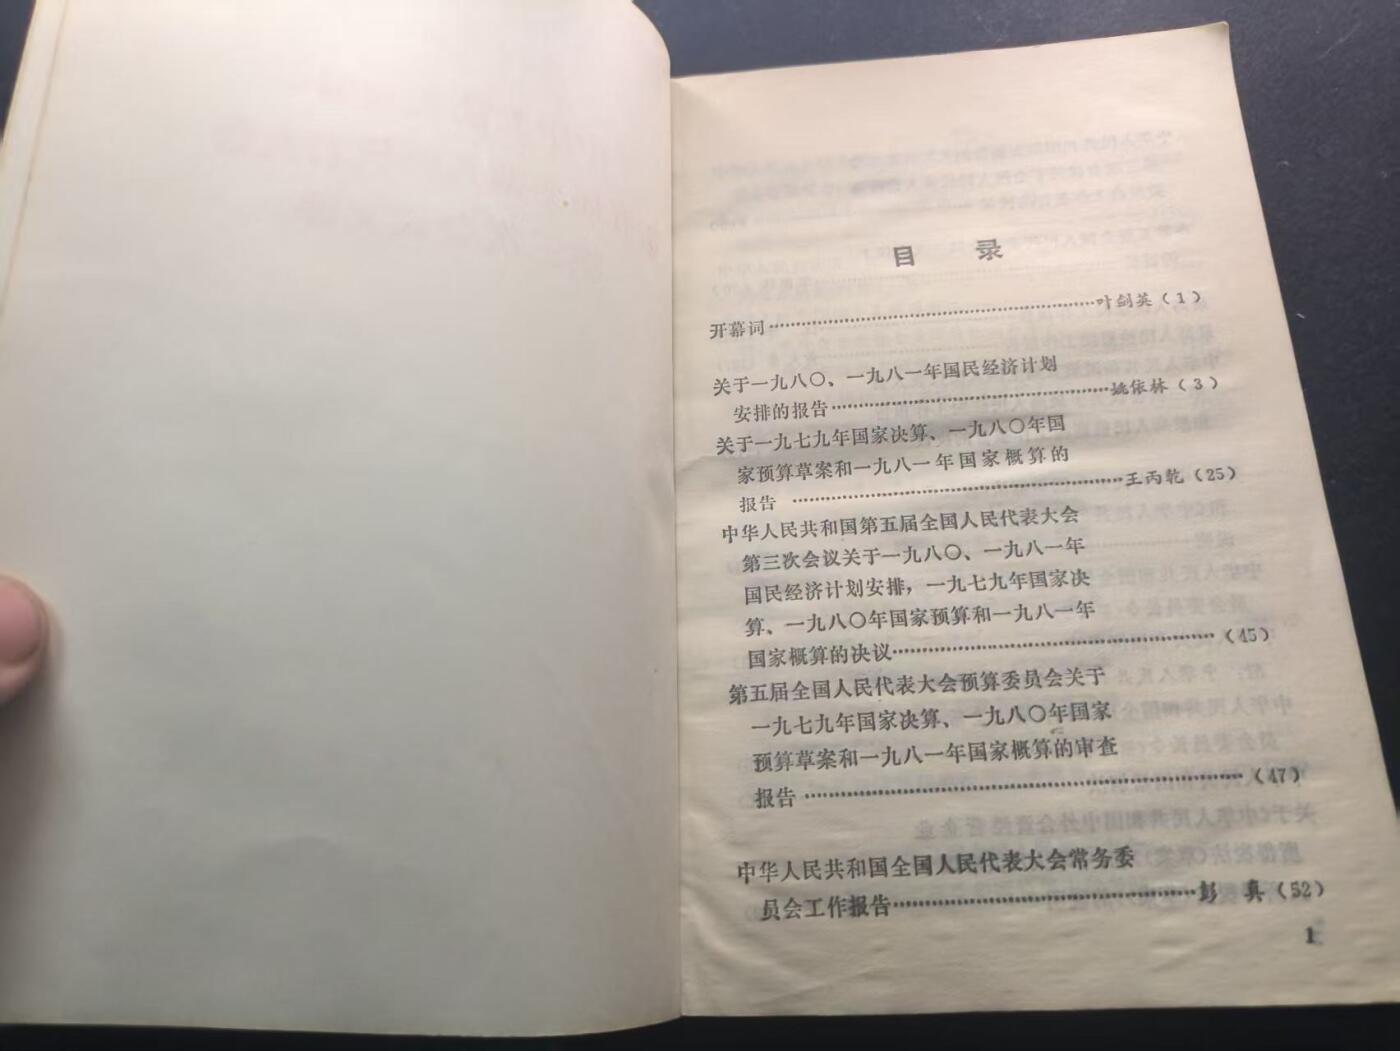 目 录
开幕词……………………………………叶剑英（1）
关于一九八〇、一九八一年国民经济计划
安排的报告……………………………姚依林（3）
关于一九七九年国家决算、一九八〇年国
家预算草案和一九八一年国家概算的
报告 ……………………………………王丙乾（25）
中华人民共和国第五届全国人民代表大会
第三次会议关于一九八〇、一九八一年
国民经济计划安排，一九七九年国家决
算、一九八〇年国家预算和一九八一年
国家概算的决议……………………………（45）
第五届全国人民代表大会预算委员会关于
一九七九年国家决算、一九八〇年国家
预算草案和一九八一年国家概算的审查
报告 ……………………………………（47）
中华人民共和国全国人民代表大会常务委
员会工作报告……………………………彭 真（52）
1